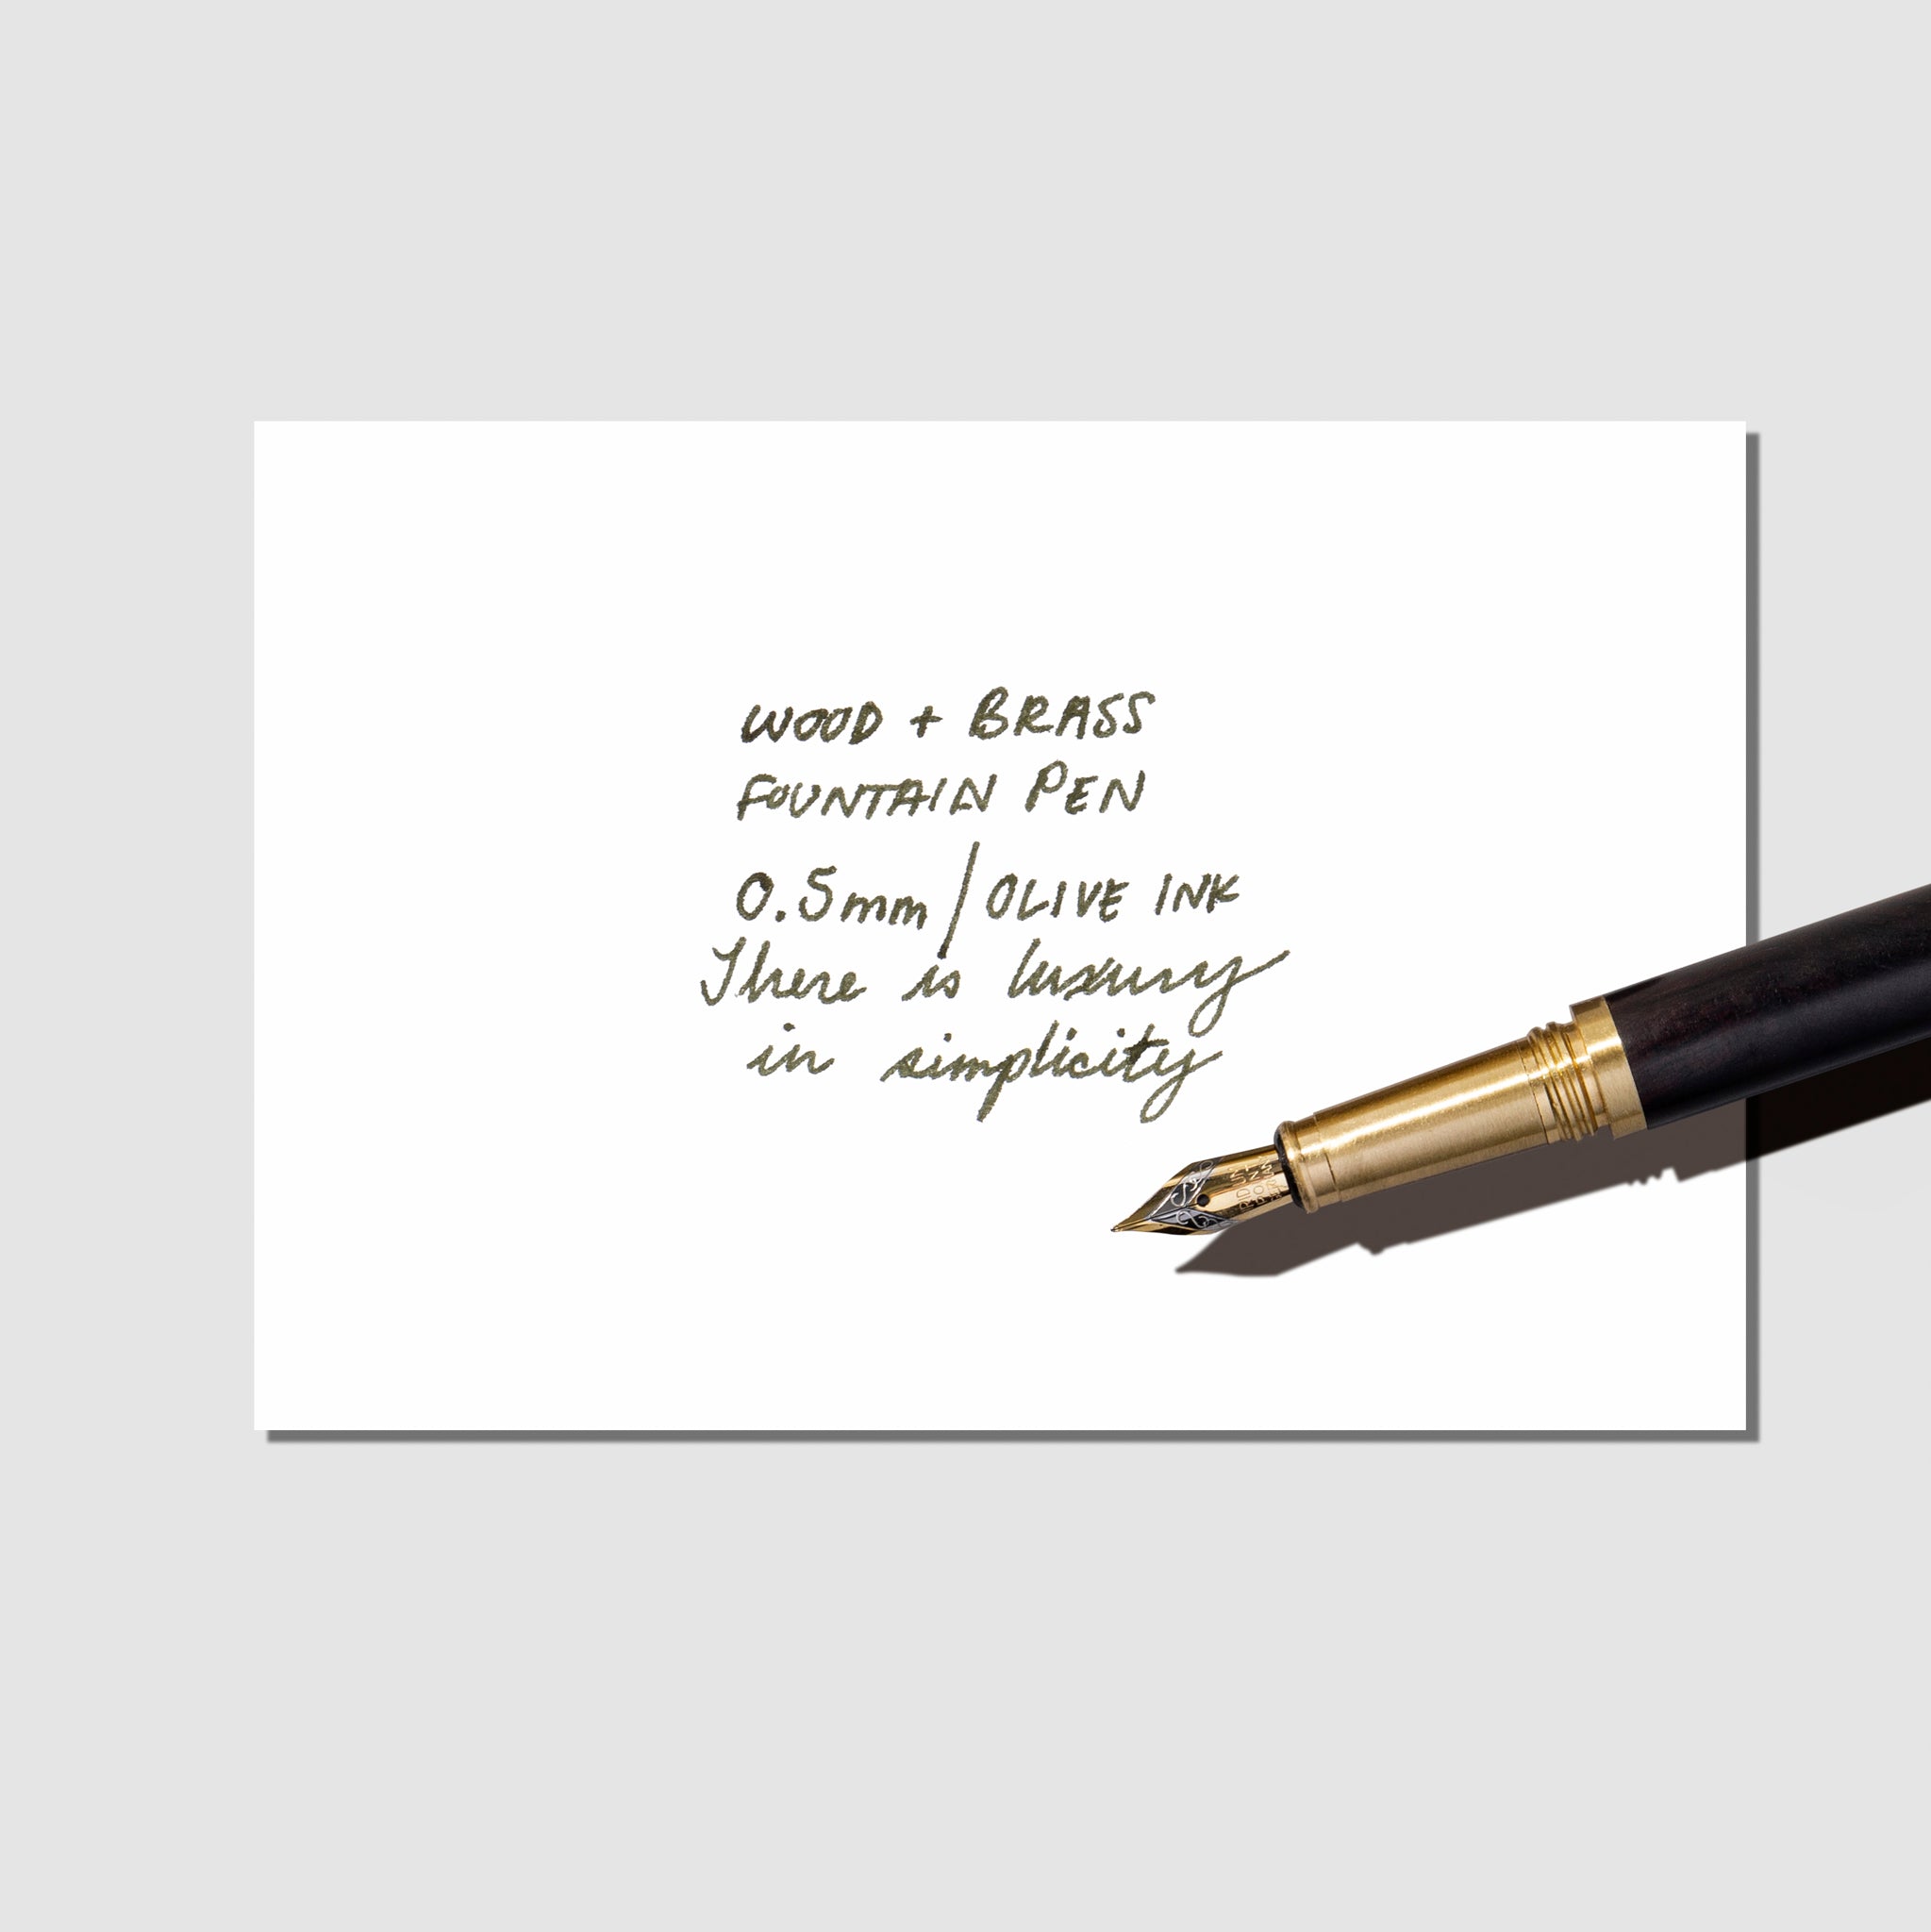 WOOD + BRASS
FOUNTAIN PEN
0.5mm / OLIVE INK
There is luxury
in simplicity